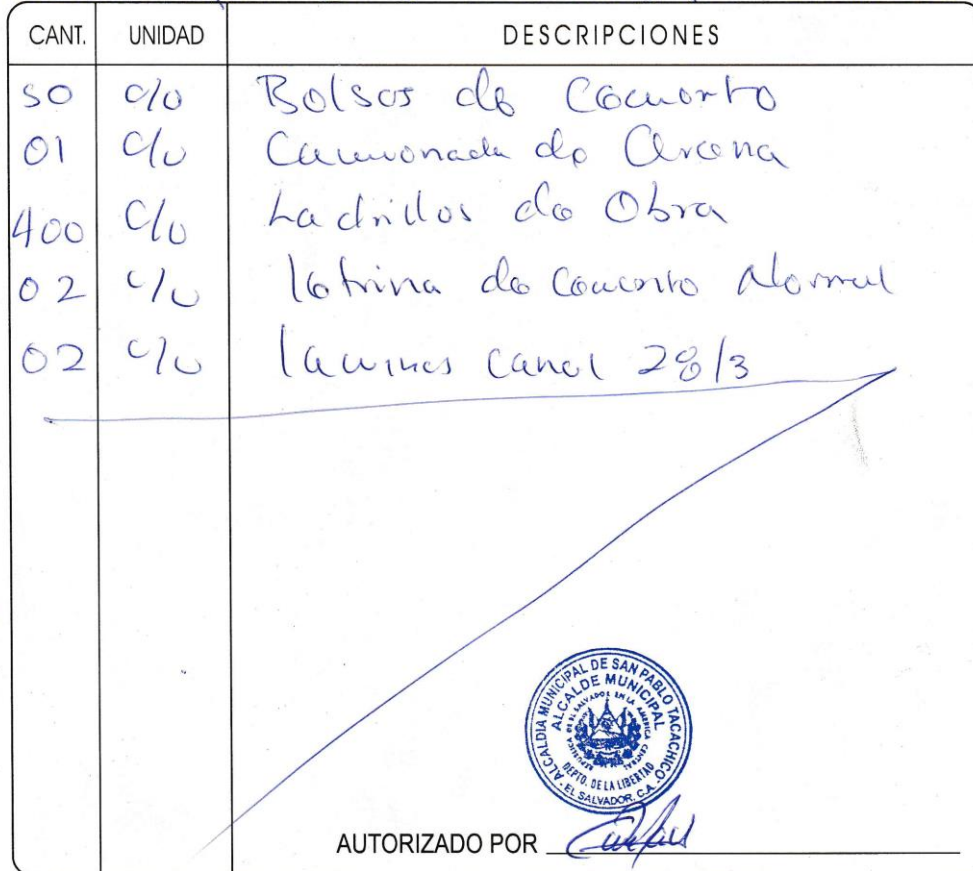 CANT. UNIDAD DESCRIPCIONES
50 c/u Bolsas de Cemento
01 c/u Camionada de Arena
400 c/u Ladrillos de Obra
02 c/u letrina de Cemento Normal
02 c/u laminas canal 28/3
ALCALDIA MUNICIPAL DE SAN PABLO TACACHICO
ALCALDE MUNICIPAL
REPUBLICA DE EL SALVADOR EN LA AMERICA CENTRAL
DEPTO. DE LA LIBERTAD
EL SALVADOR, C.A.
AUTORIZADO POR